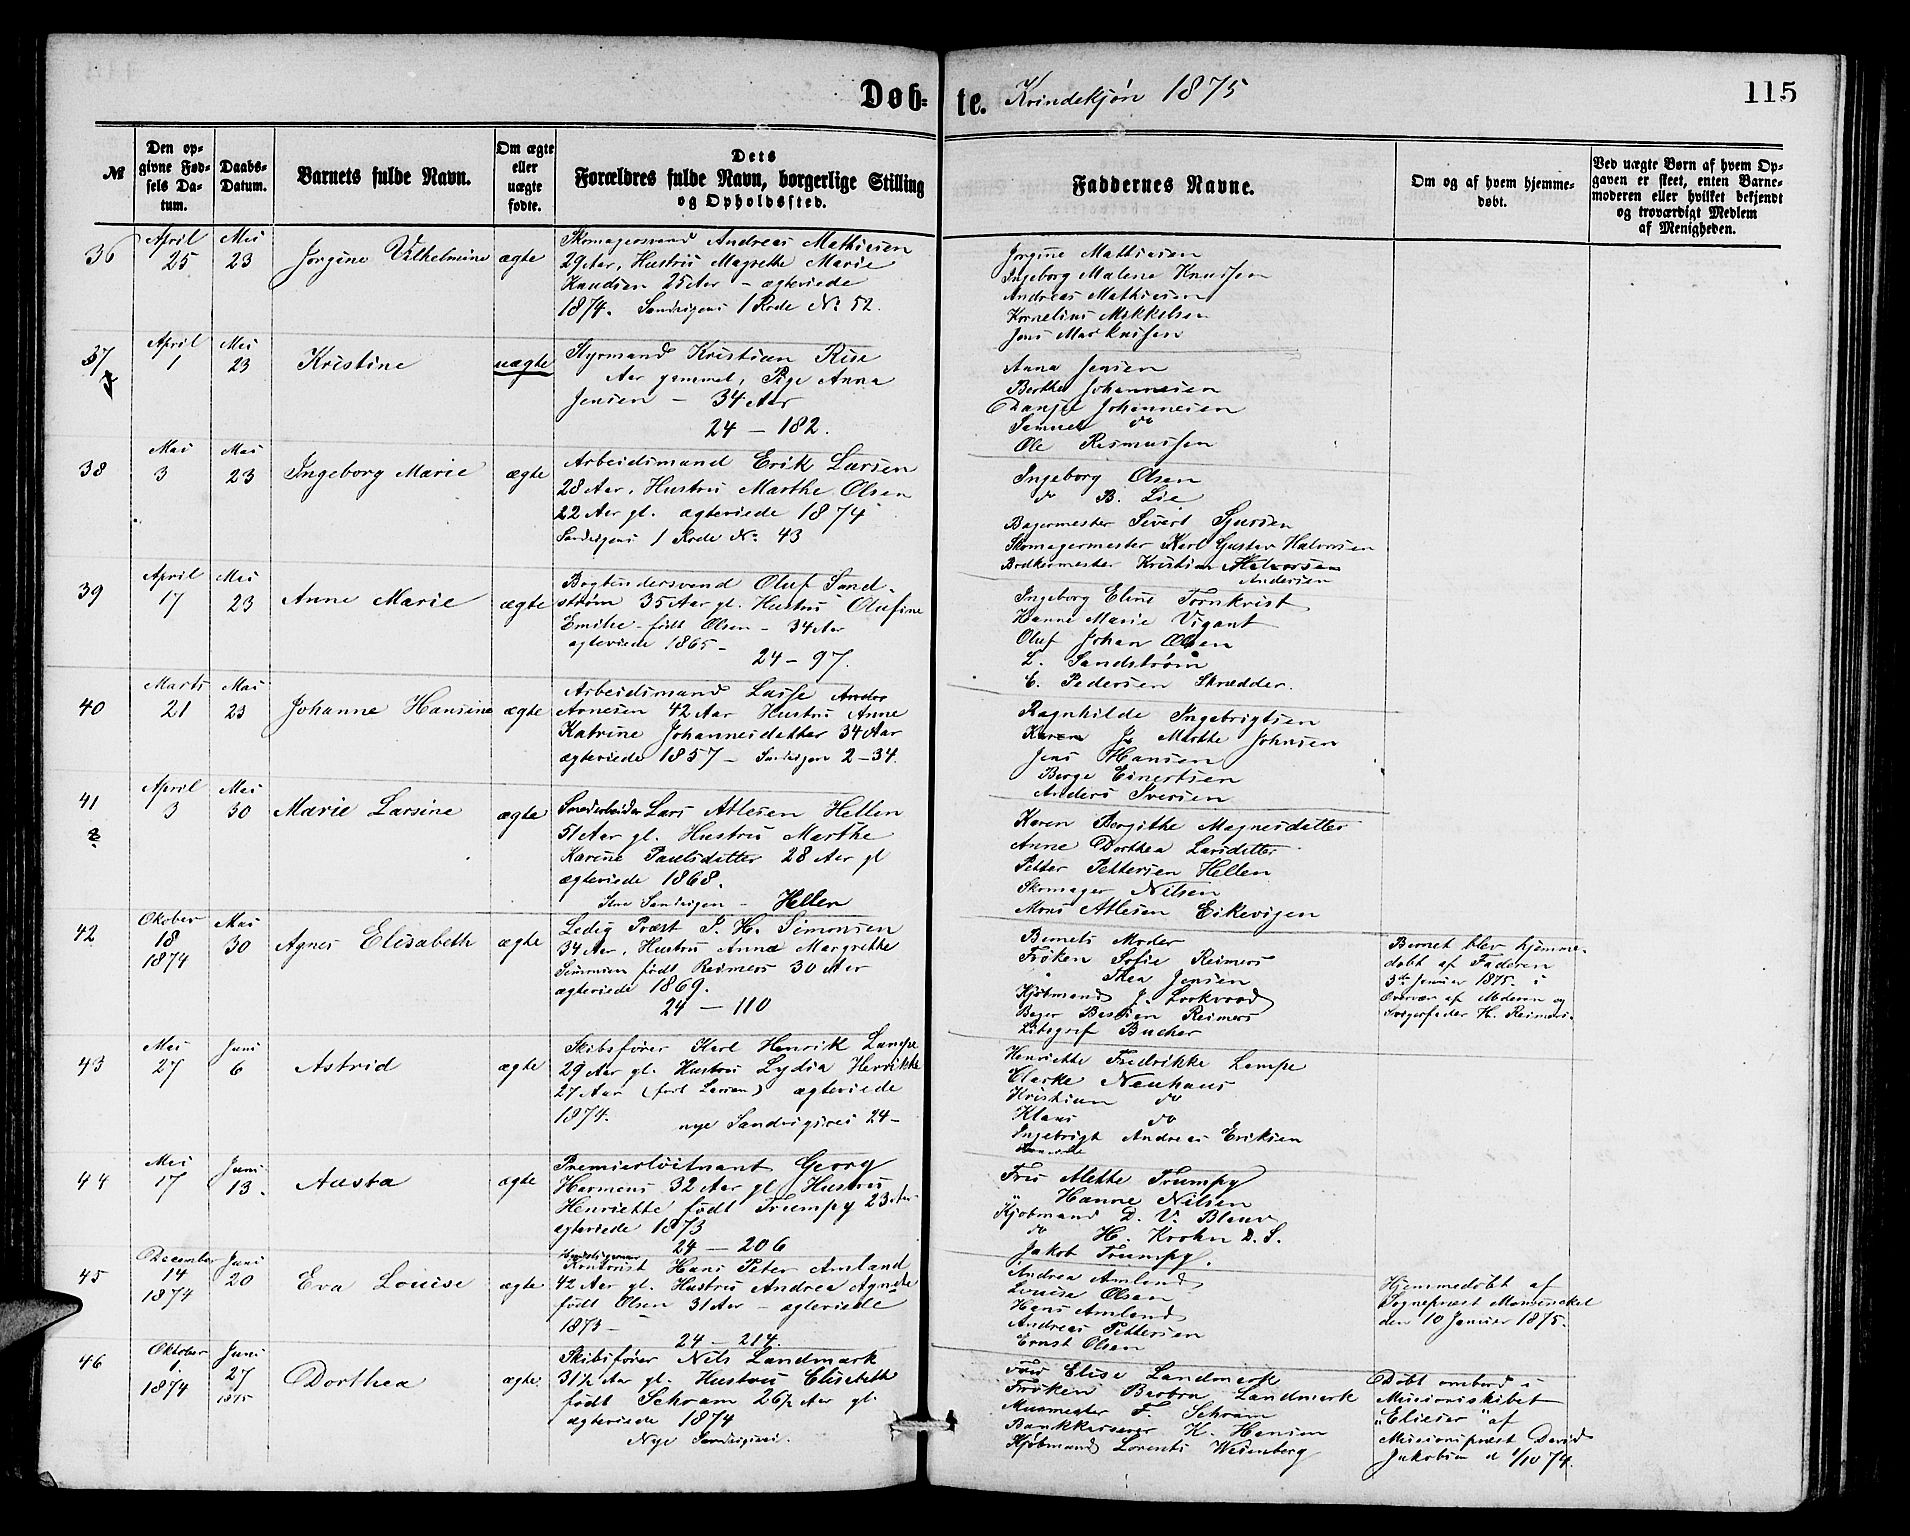 Døb-te. Kvindekjøn 1875
115
№
Den opgivne Fødsels Datum.
Daabs-Datum.
Barnets fulde Navn.
Om ægte eller uægte fødte.
Dets Forældres fulde Navn, borgerlige Stilling og Opholdssted.
Faddernes Navne.
Om og af hvem hjemmedøbt.
Ved uægte Børn af hvem Opgaven er skeet, enten Barnemoderen eller hvilket bekjendt og troværdigt Medlem af Menigheden.
36
April 25
Mai 23
Jørgine Vilhelmine
ægte
Skomagersvend Andreas Mathiesen
29 Aar, Hustru Magrethe Marie
Knudsen 25 Aar – ægteviede
1874. Sandvigens 1 Rode № 52.
Jørgine Mathiesen
Ingeborg Malene Knudsen
Andreas Mathiesen
Kornelius Mikkelsen
Jens Markussen
37
April 1
Mai 23
Kristine
uægte
Styrmand Kristian Riise
Aar gammel, Pige Anna
Jensen – 34 Aar
24 – 182.
Anna Jensen
Berthe Johannesen
Danjel Johannesen
Samuel do
Ole Rasmussen
38
Mai 3
Mai 23
Ingeborg Marie
ægte
Arbeidsmand Erik Larsen
28 Aar, Hustru Marthe Olsen
22 Aar gl. ægteviede 1874
Sandvigens 1 Rode № 43
Ingeborg Olsen
do B. Lie
Bagermester Sivert Sjursen
Skomagermester Karl Gustav Halvorsen
Bødkermester Kristian Halvorsen
Andersen
39
April 17
Mai 23
Anne Marie
ægte
Bogbindersvend Oluf Sand-
strøm 35 Aar gl. Hustru Olufine
Emilie født Olsen – 34 Aar
ægteviede 1865 –
24 – 97.
Ingeborg Eline Tornkvist
Hanne Marie Vigant
Oluf Johan Olsen
L. Sandstrøm
E. Pedersen Skrædder.
40
Marts 21
Mai 23
Johanne Hansine
ægte
Arbeidsmand Lasse Andre
Arnesen 42 Aar Hustru Anne
Katrine Johannesdatter 34 Aar
ægteviede 1857 – Sandvigen 2–34.
Ragnhilde Ingebrigtsen
Karen J. Marthe Johnsen
Jens Hansen
Berge Einertsen
Anders Iversen
41
April 3
Mai 30
Marie Larsine
ægte
Lars Atlesen Hellen
51 Aar gl. Hustru Marthe
Karine Paulsdatter 28 Aar gl
ægteviede 1868.
Sandvigen – Hellen
Karen Bergithe Magnesdatter
Anne Dorthea Larsdatter
Petter Pettersen Hellen
Skomager Nilsen
Mons Atlesen Eikevigen
42
Oktober 18 1874
Mai 30
Agnes Elisabeth
ægte
Ledig Præst P. H. Simonsen
34 Aar, Hustru Anna Margrethe
Simonsen født Reimers 30 Aar
ægteviede 1869.
24 – 110
Barnets Moder
Frøken Sofie Reimers
" Thea Jensen
Kjøbmand J. Lorkvood
Bager Bastian Reimers
Litograf Bucher
Barnet blev hjemme-
døbt af Faderen
3de Januar 1875. i
Overvær af Moderen og
Svigerfader H. Reimers.
43
Mai 27
Juni 6
Astrid
ægte
Skibsfører Karl Henrik Lampe
29 Aar gl. Hustru Lydia Henrikke
27 Aar (født Larsen) ægteviede
1874. nye Sandvigsvei 24–
Henriette Fredrikke Lampe
Clarke Neuhaus
Kristian do
Klaus do
Ingebrigt Andreas Eriksen
44
Mai 17
Juni 13.
Aasta
ægte
Premierløitnant Georg
Harmens 32 Aar gl Hustru
Henriette født Trumpy 23 Aar
ægteviede 1873
24 – 206
Fru Alette Trumpy
" Hanne Nilsen
Kjøbmand D. V. Blauv
do H. Krohn D. S.
Jakob Trumpy.
45
December 14 1874
Juni 20
Eva Louise
ægte
Kontorist Hans Peter Amland
42 Aar gl. Hustru Andrea Agnete
født Olsen 31 Aar – ægteviede
1873 –
24 – 214.
Andrea Amland
Louise Olsen
Hans Amland
Andreas Pettersen
Ernst Olsen
Hjemmedøbt af
Sognepræst
den 10 Januar 1875.
46
Oktober 1. 1874
Juni 27 1875
Dorthea
ægte.
Skibsfører Nils Landmark
31½ Aar gl. Hustru Elisabeth
født Schram 26½ Aar gl.
ægteviede 1874
Nye Sandvigsvei.
Fru Elise Landmark
Frøken Barbra Landmark
Murmester F. Schram
Bankkasserer K. Hansen
Kjøbmand Lorents Wesenberg
Døbt ombord i
Missionsskibet
"Elieser" af
Missionspræst David
Jakobsen d 1/10 74.